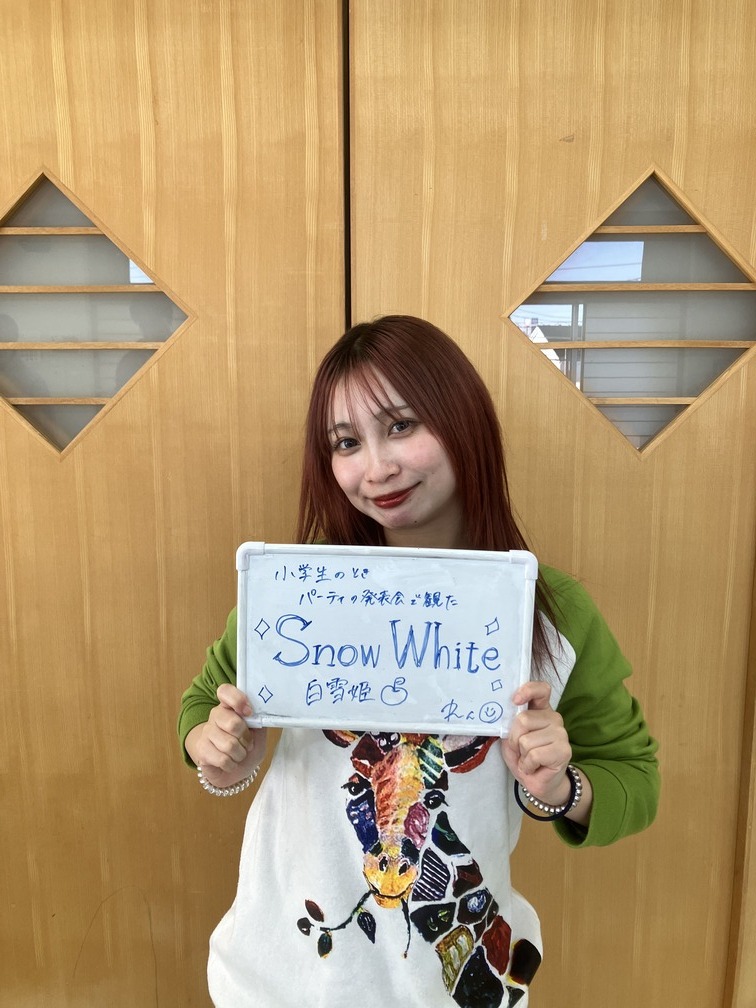 小学生のとき
パーティの発表会で観た
Snow White
白雪姫
れん